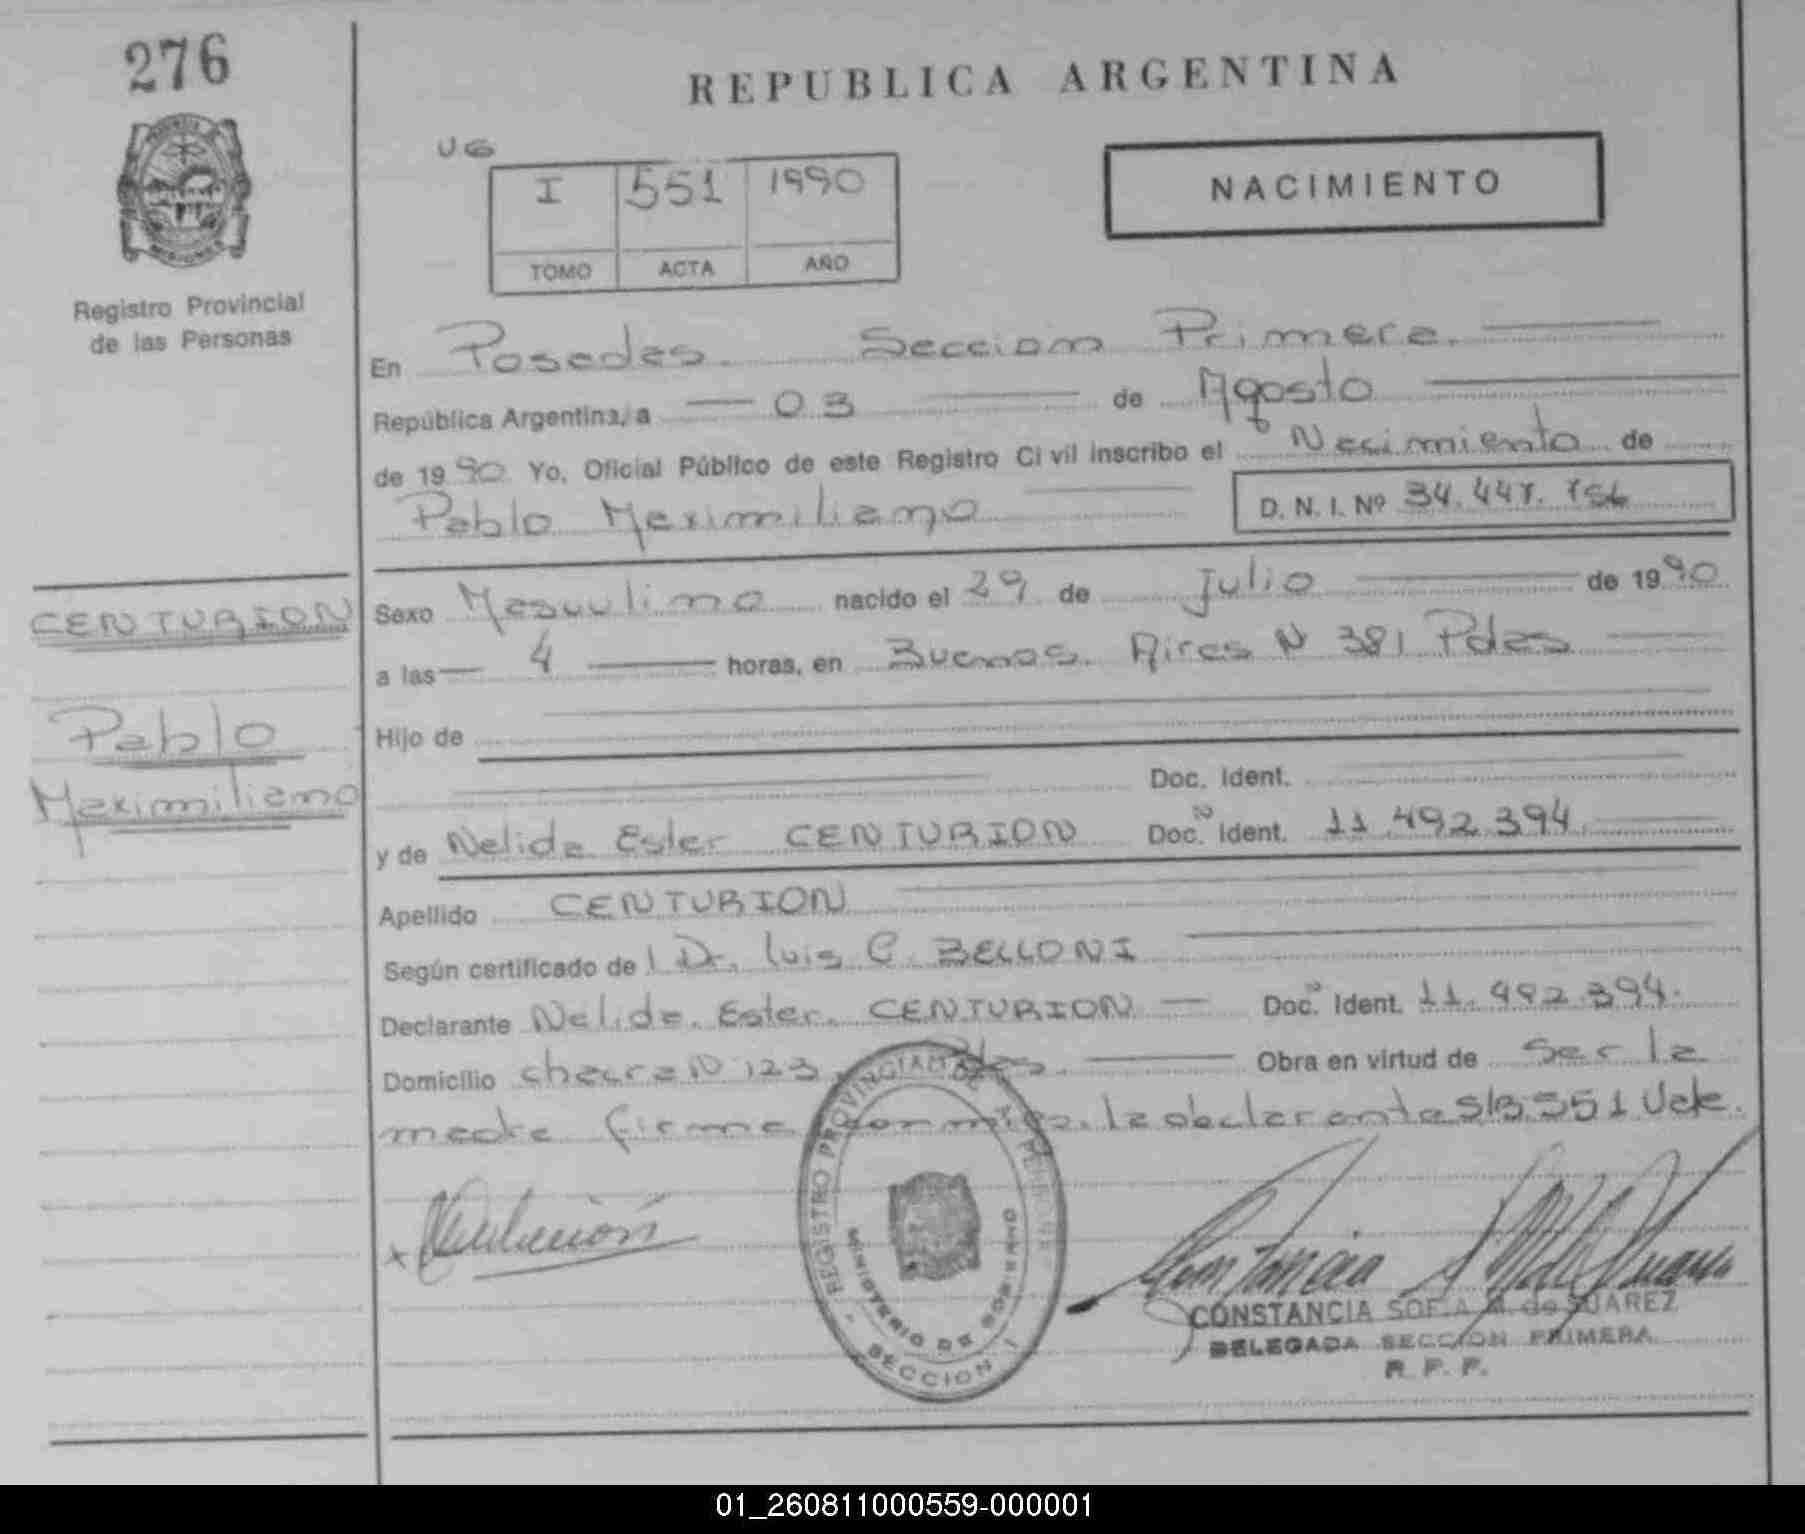 276
REPUBLICA ARGENTINA
UG
I 551 1990
TOMO ACTA AÑO
NACIMIENTO
Registro Provincial
de las Personas
En Posadas. Seccion Primera.
República Argentina, a 03 de Agosto
de 1990 Yo, Oficial Público de este Registro Civil inscribo el Nacimiento de
Pablo Maximiliano D. N. I. Nº 34.447.
CENTURION
Pablo
Maximiliano
Sexo Masculino nacido el 29 de Julio de 1990
a las 4 horas, en Buenos Aires N 381 Pdas
Hijo de
Doc. Ident.
y de Nelida Ester CENTURION Doc. Ident. 11.492.394
Apellido CENTURION
Según certificado de Dr. Luis C. BELLONI
Declarante Nelida Ester CENTURION Doc. Ident. 11.492.394.
Domicilio chacra N 123 Obra en virtud de ser la
madre firma conmigo la declarante S/B 551 Vale.
REGISTRO PROVINCIAL DE
MINISTERIO DE GOBIERNO
SECCION I
CONSTANCIA SOFIA M. de SUAREZ
DELEGADA SECCION PRIMERA
R. P. P.
01_260811000559-000001